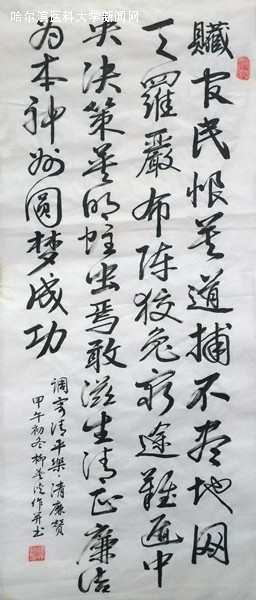 哈尔滨医科大学新闻网
贓官民恨莫道捕不尽地网
天羅嚴布阵狡兔穷途難匿中
央决策英明蛀虫焉敢滋生清正廉洁
为本神州圆梦成功
调寄清平樂·清廉赞
甲午初冬柳作并书